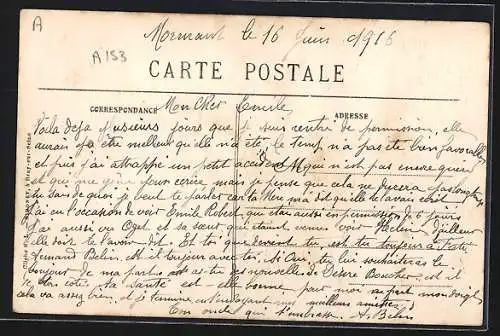 A
Mormant le 16 Juin 1916
A 153
CARTE POSTALE
CORRESPONDANCE
ADRESSE
Mon Cher Emile
Voila deja plusieurs jours que je suis rentré de permission, elle
aurais pu être meilleur qu'elle n'a été, le temp n'a pas été bien favorable
et puis j'ai attrappé un petit accident qui n'est pas encore guéri
et qui me gêne pour écrire mais je pense que cela ne durera pas longtemps
tu sais de quoi je veut te parler car la Mère m'a dit qu'elle te l'avais écrit
J'ai eu l'occasion de voir Emile Robert qui était aussi en permission de 6 jours
j'ai aussi vu Ogel et sa sœur qui étaient venus voir Helen
elle doit te l'avoir dit. Et toi que devient tu, es tu toujours à
Armand Belin, est il toujours avec toi. Si Oui, tu lui souhaiteras le
bonjour de ma part, as-tu des nouvelles de Désiré Boucher, est il
Ta Santé est elle bonne pour moi
cela va assez bien, et je termine en t'envoyant mes meilleurs amitiés
Ton oncle qui t'embrasse. A. Belin